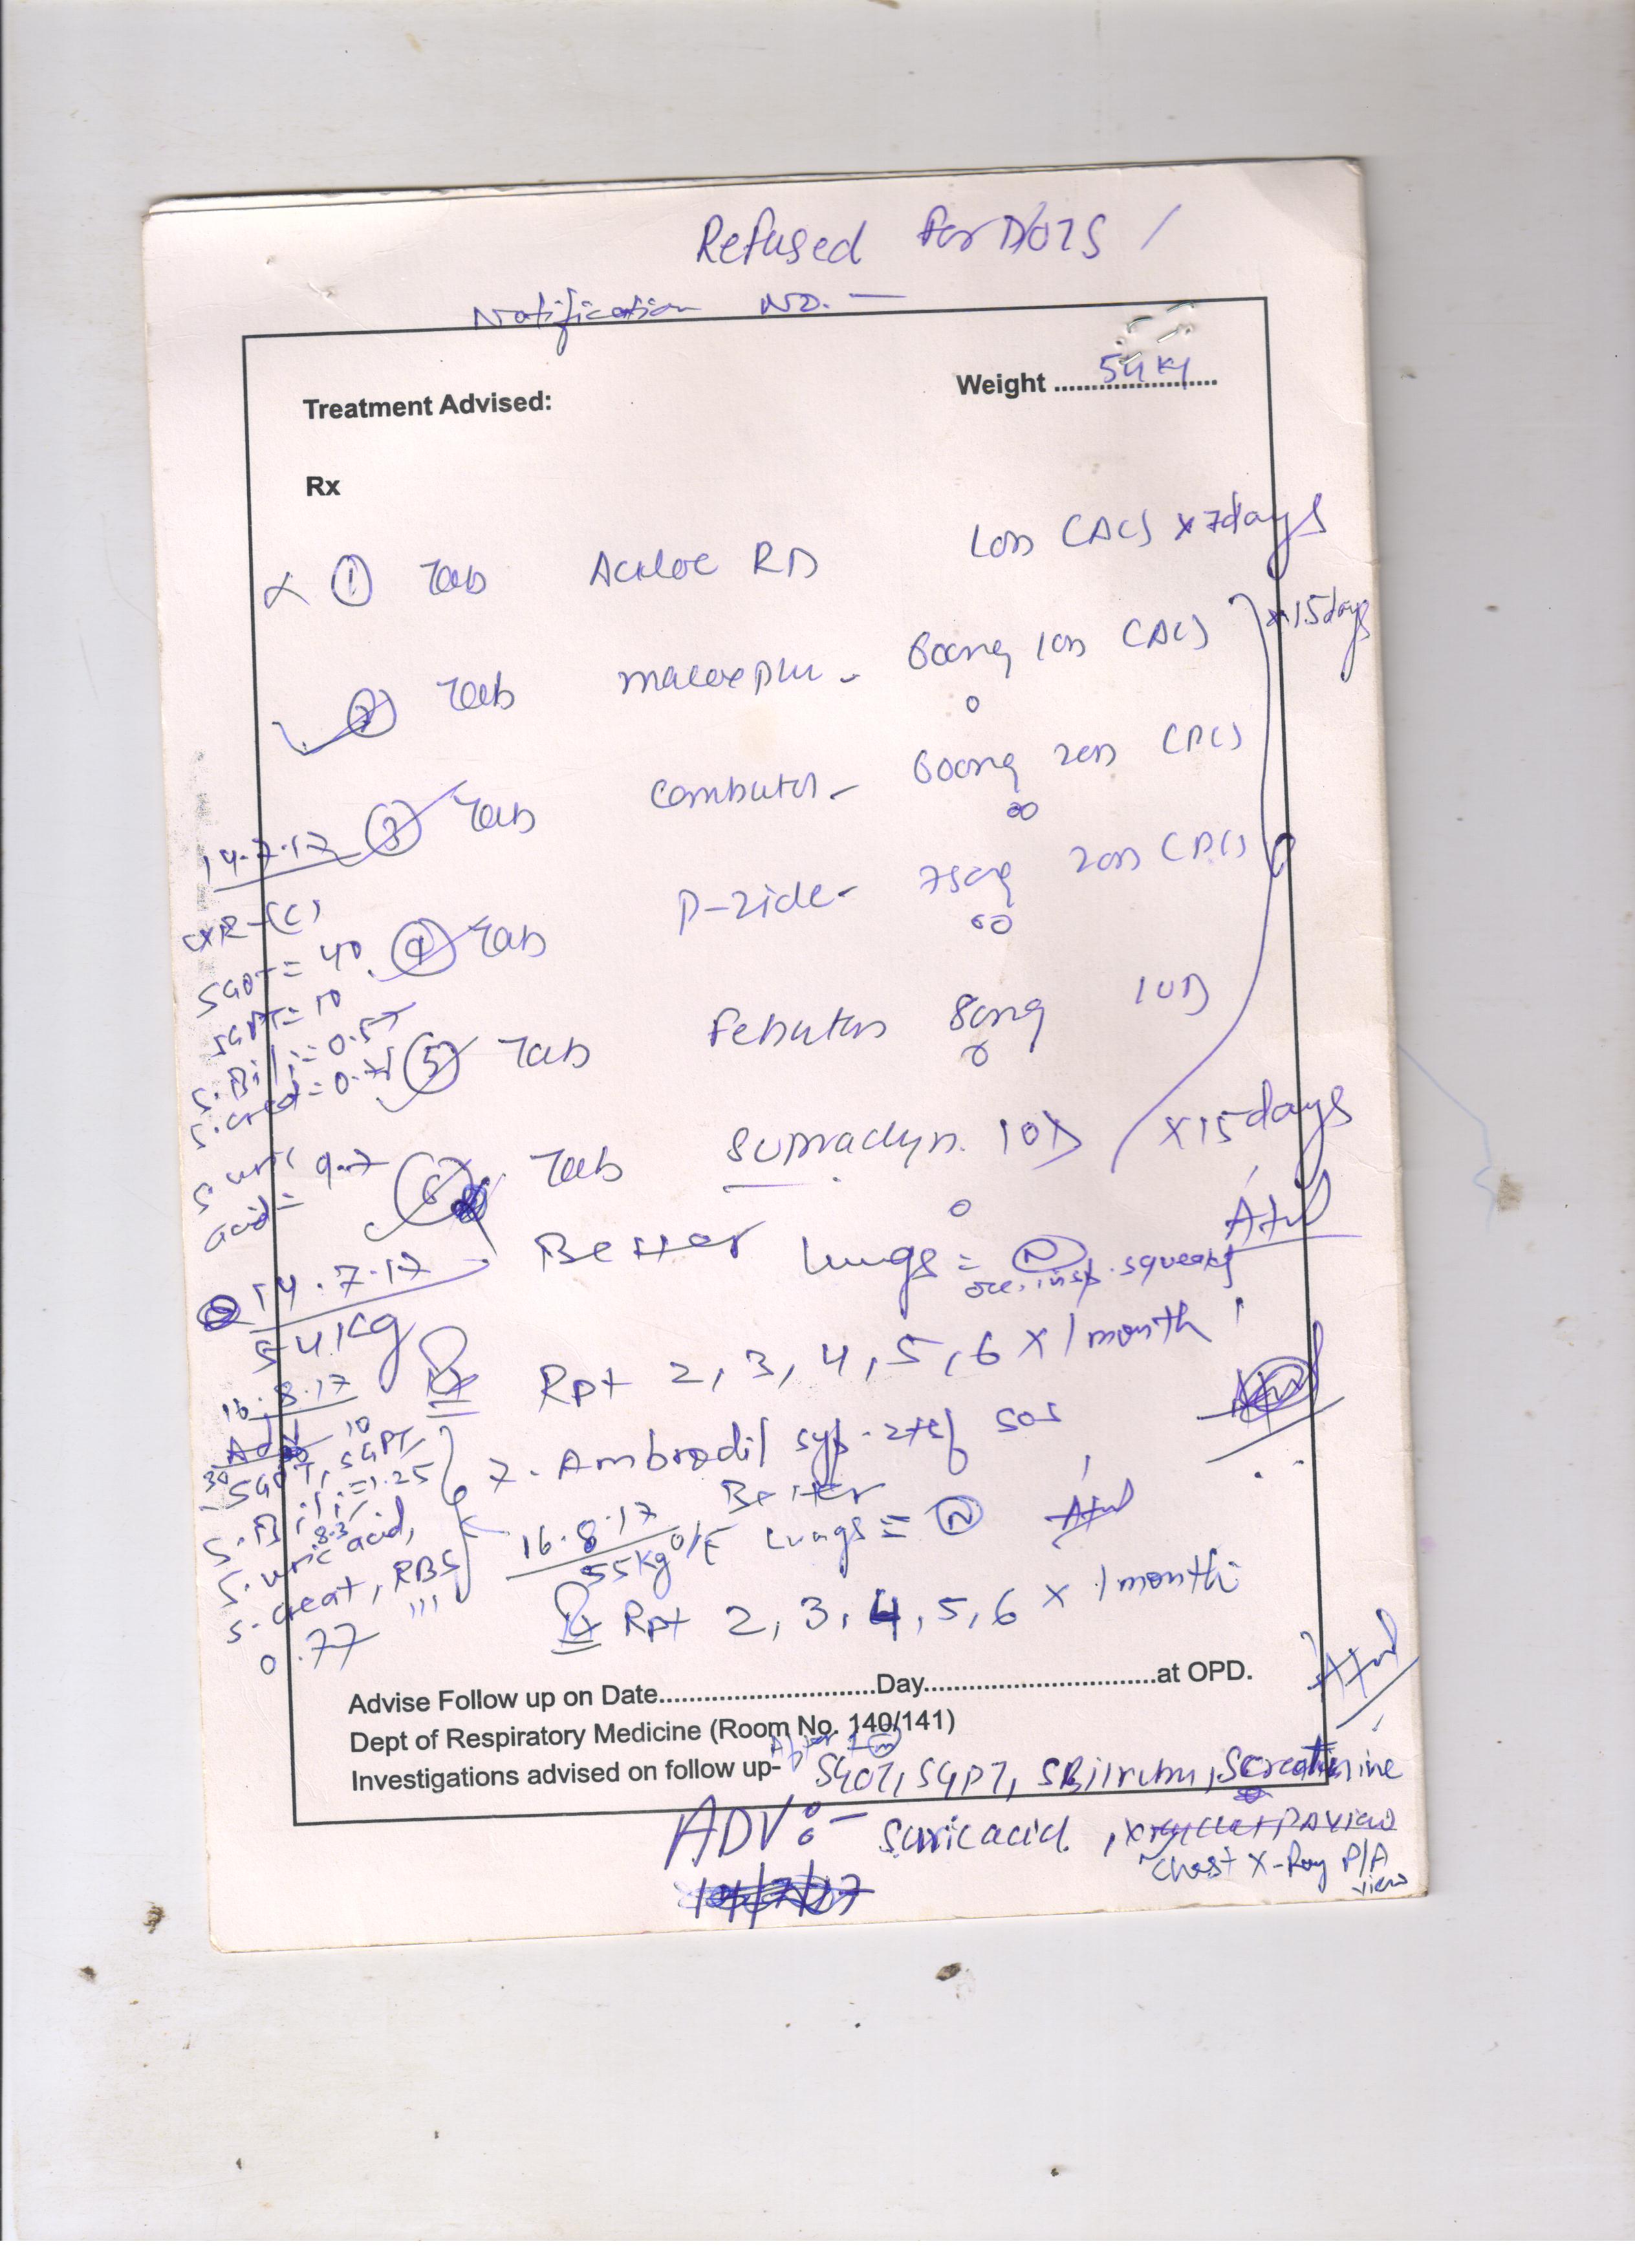 Refused for DOTS /
Notification NO. —
Weight ...................... 54 kg
Treatment Advised:
Rx
x ① Tab RD 1OD (AC) x 7days
② Tab - 600mg 1OD (AC) x 15days
③ Tab Combutol - 800mg 2OD (AC)
④ Tab P-zide - 750mg 2OD (AC)
⑤ Tab 80mg 1OD
⑥ Tab Supradyn. 1OD x 15 days
14.7.17
CXR - (C)
SGOT = 40
SGPT = 10
S. Bili = 0.55
S. creat = 0.75
S uric acid = 9.7
14.7.17 Better Lungs = Ⓝ
occ. insp. squeaks
54 kg
Rx Rpt 2, 3, 4, 5, 6 x 1 month
7. Ambrodil syp. 2tsf sos
16.8.17
Adv
30 SGOT, 10 SGPT,
S. Bili = 1.25
S. uric acid, 8.3
S. creat, RBS
0.77 111
16.8.17 Better
55kg O/E Lungs = Ⓝ
Rx Rpt 2, 3, 4, 5, 6 x 1 month
Advise Follow up on Date..............................Day................................at OPD.
Dept of Respiratory Medicine (Room No. 140/141)
After 1 ⓜ
Investigations advised on follow up- SGOT, SGPT, SBilirubin, Screatinine
ADV:- Suric acid, Chest X-Ray P/A view
14/7/17